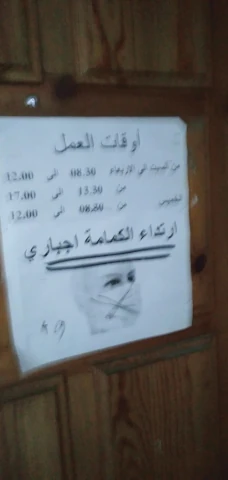 أوقات العمل
من السبت الى الاربعاء 08.30 الى 12.00
من 13.30 الى 17.00
الخميس من 08.30 الى 12.00
ارتداء الكمامة اجباري